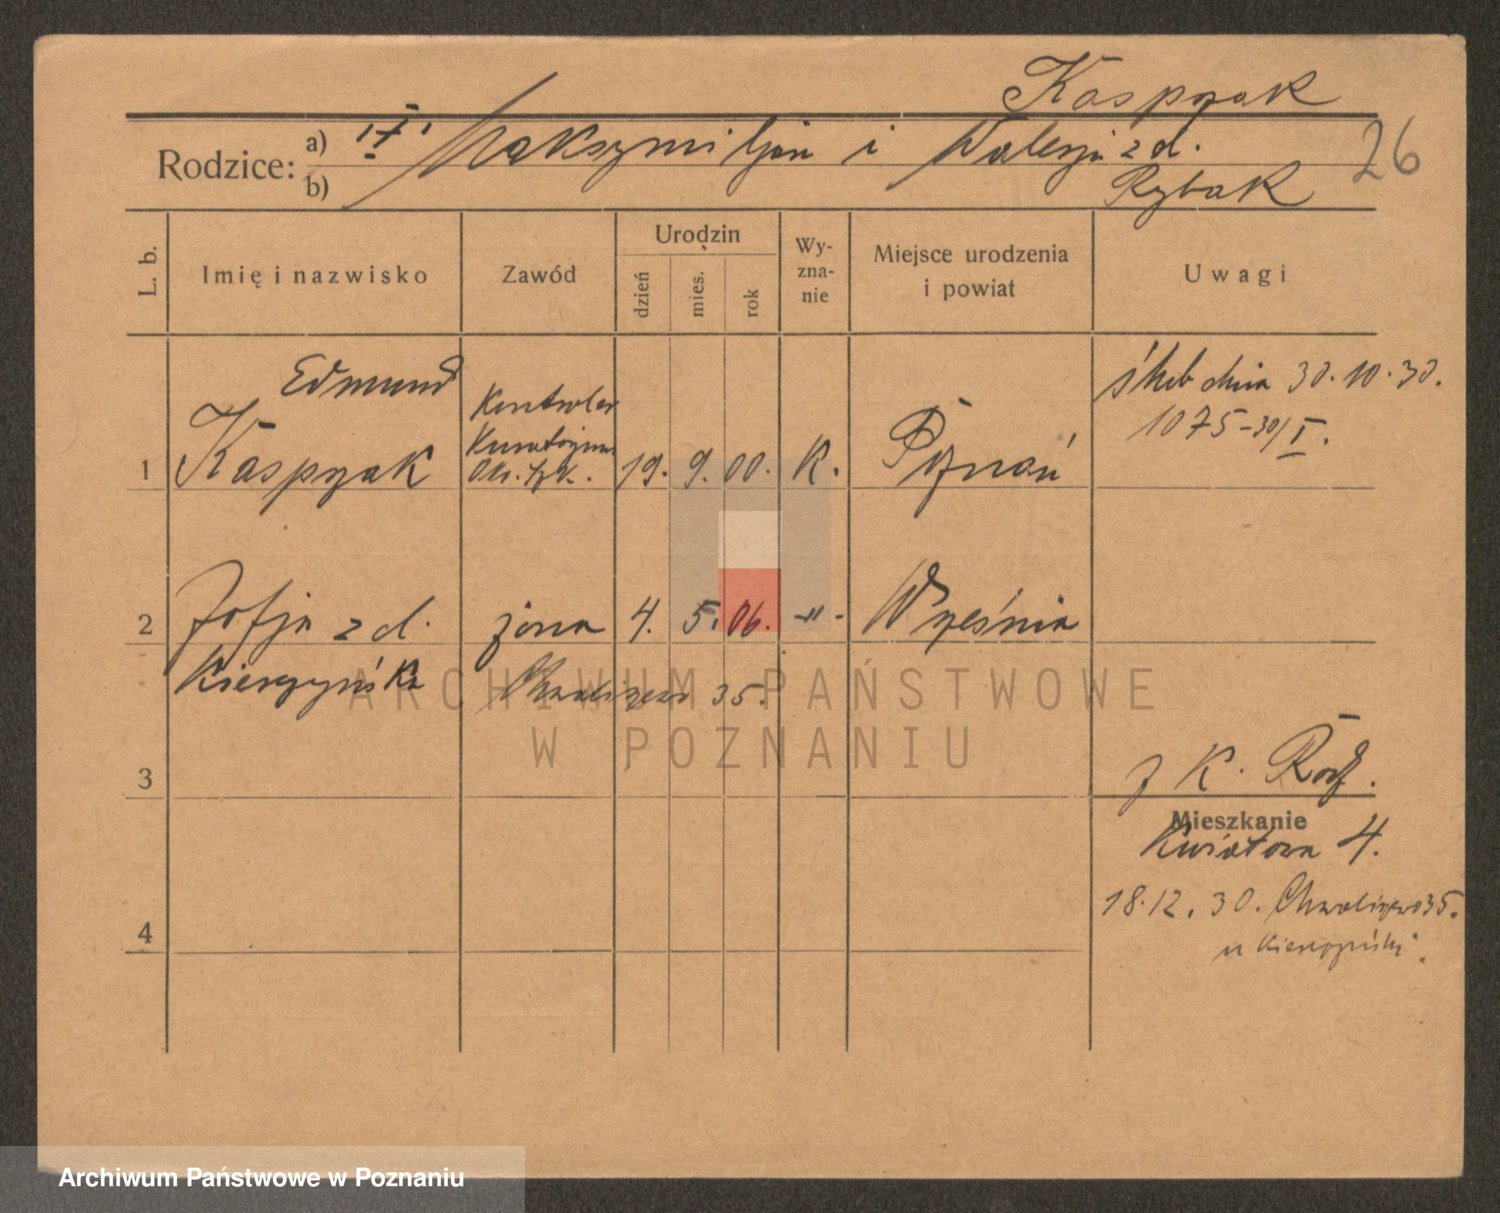 Kasprzak
26
Rodzice: a) Maksymiljan i Walerja z d.
b) Rybak
L. b. Imię i nazwisko Zawód Urodzin dzień mies. rok Wy-zna-nie Miejsce urodzenia i powiat Uwagi
Edmund
1 Kasprzak Kontroler Kuratorjum Okr. Szk. 19. 9. 00. K. Poznań
ślub dnia 30.10.30.
1075-30/I.
2 Zofja z d. żona 4. 5. 06. -"- Września
Kierczyńska Chwaliszewo 35.
3
z K. Rodz.
Mieszkanie
Kwiatowa 4.
18.12.30. Chwaliszewo 35.
u Kierczyński.
4
ARCHIWUM PAŃSTWOWE
W POZNANIU
Archiwum Państwowe w Poznaniu